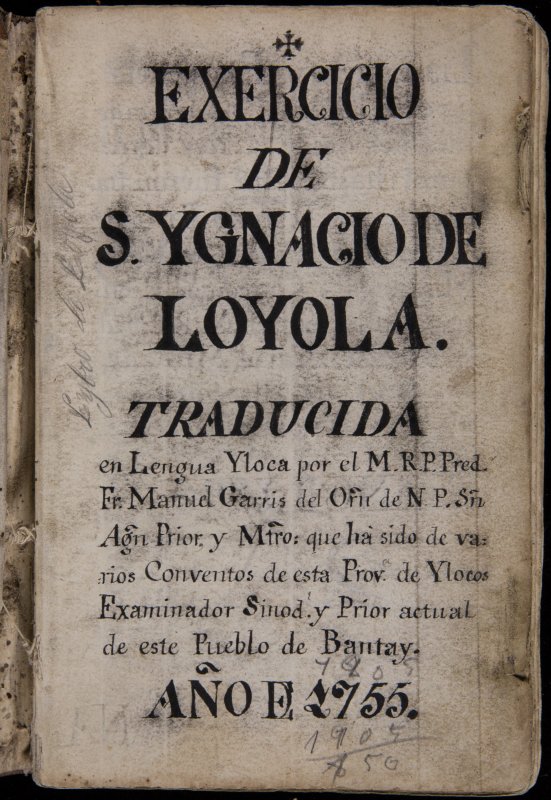 EXERCICIO
DE
S. YGNACIO DE
LOYOLA.
TRADUCIDA
en Lengua Yloca por el M.R.P. Pred.
Fr. Manuel Garris del Orñ de N P. Sñ
Agñ Prior, y Mtro: que hà sido de va:
rios Conventos de esta Prov.ª de Ylocos
Examinador Sinod.l y Prior actual
de este Pueblo de Bantay.
AÑO E 1755.
1905
1905
150